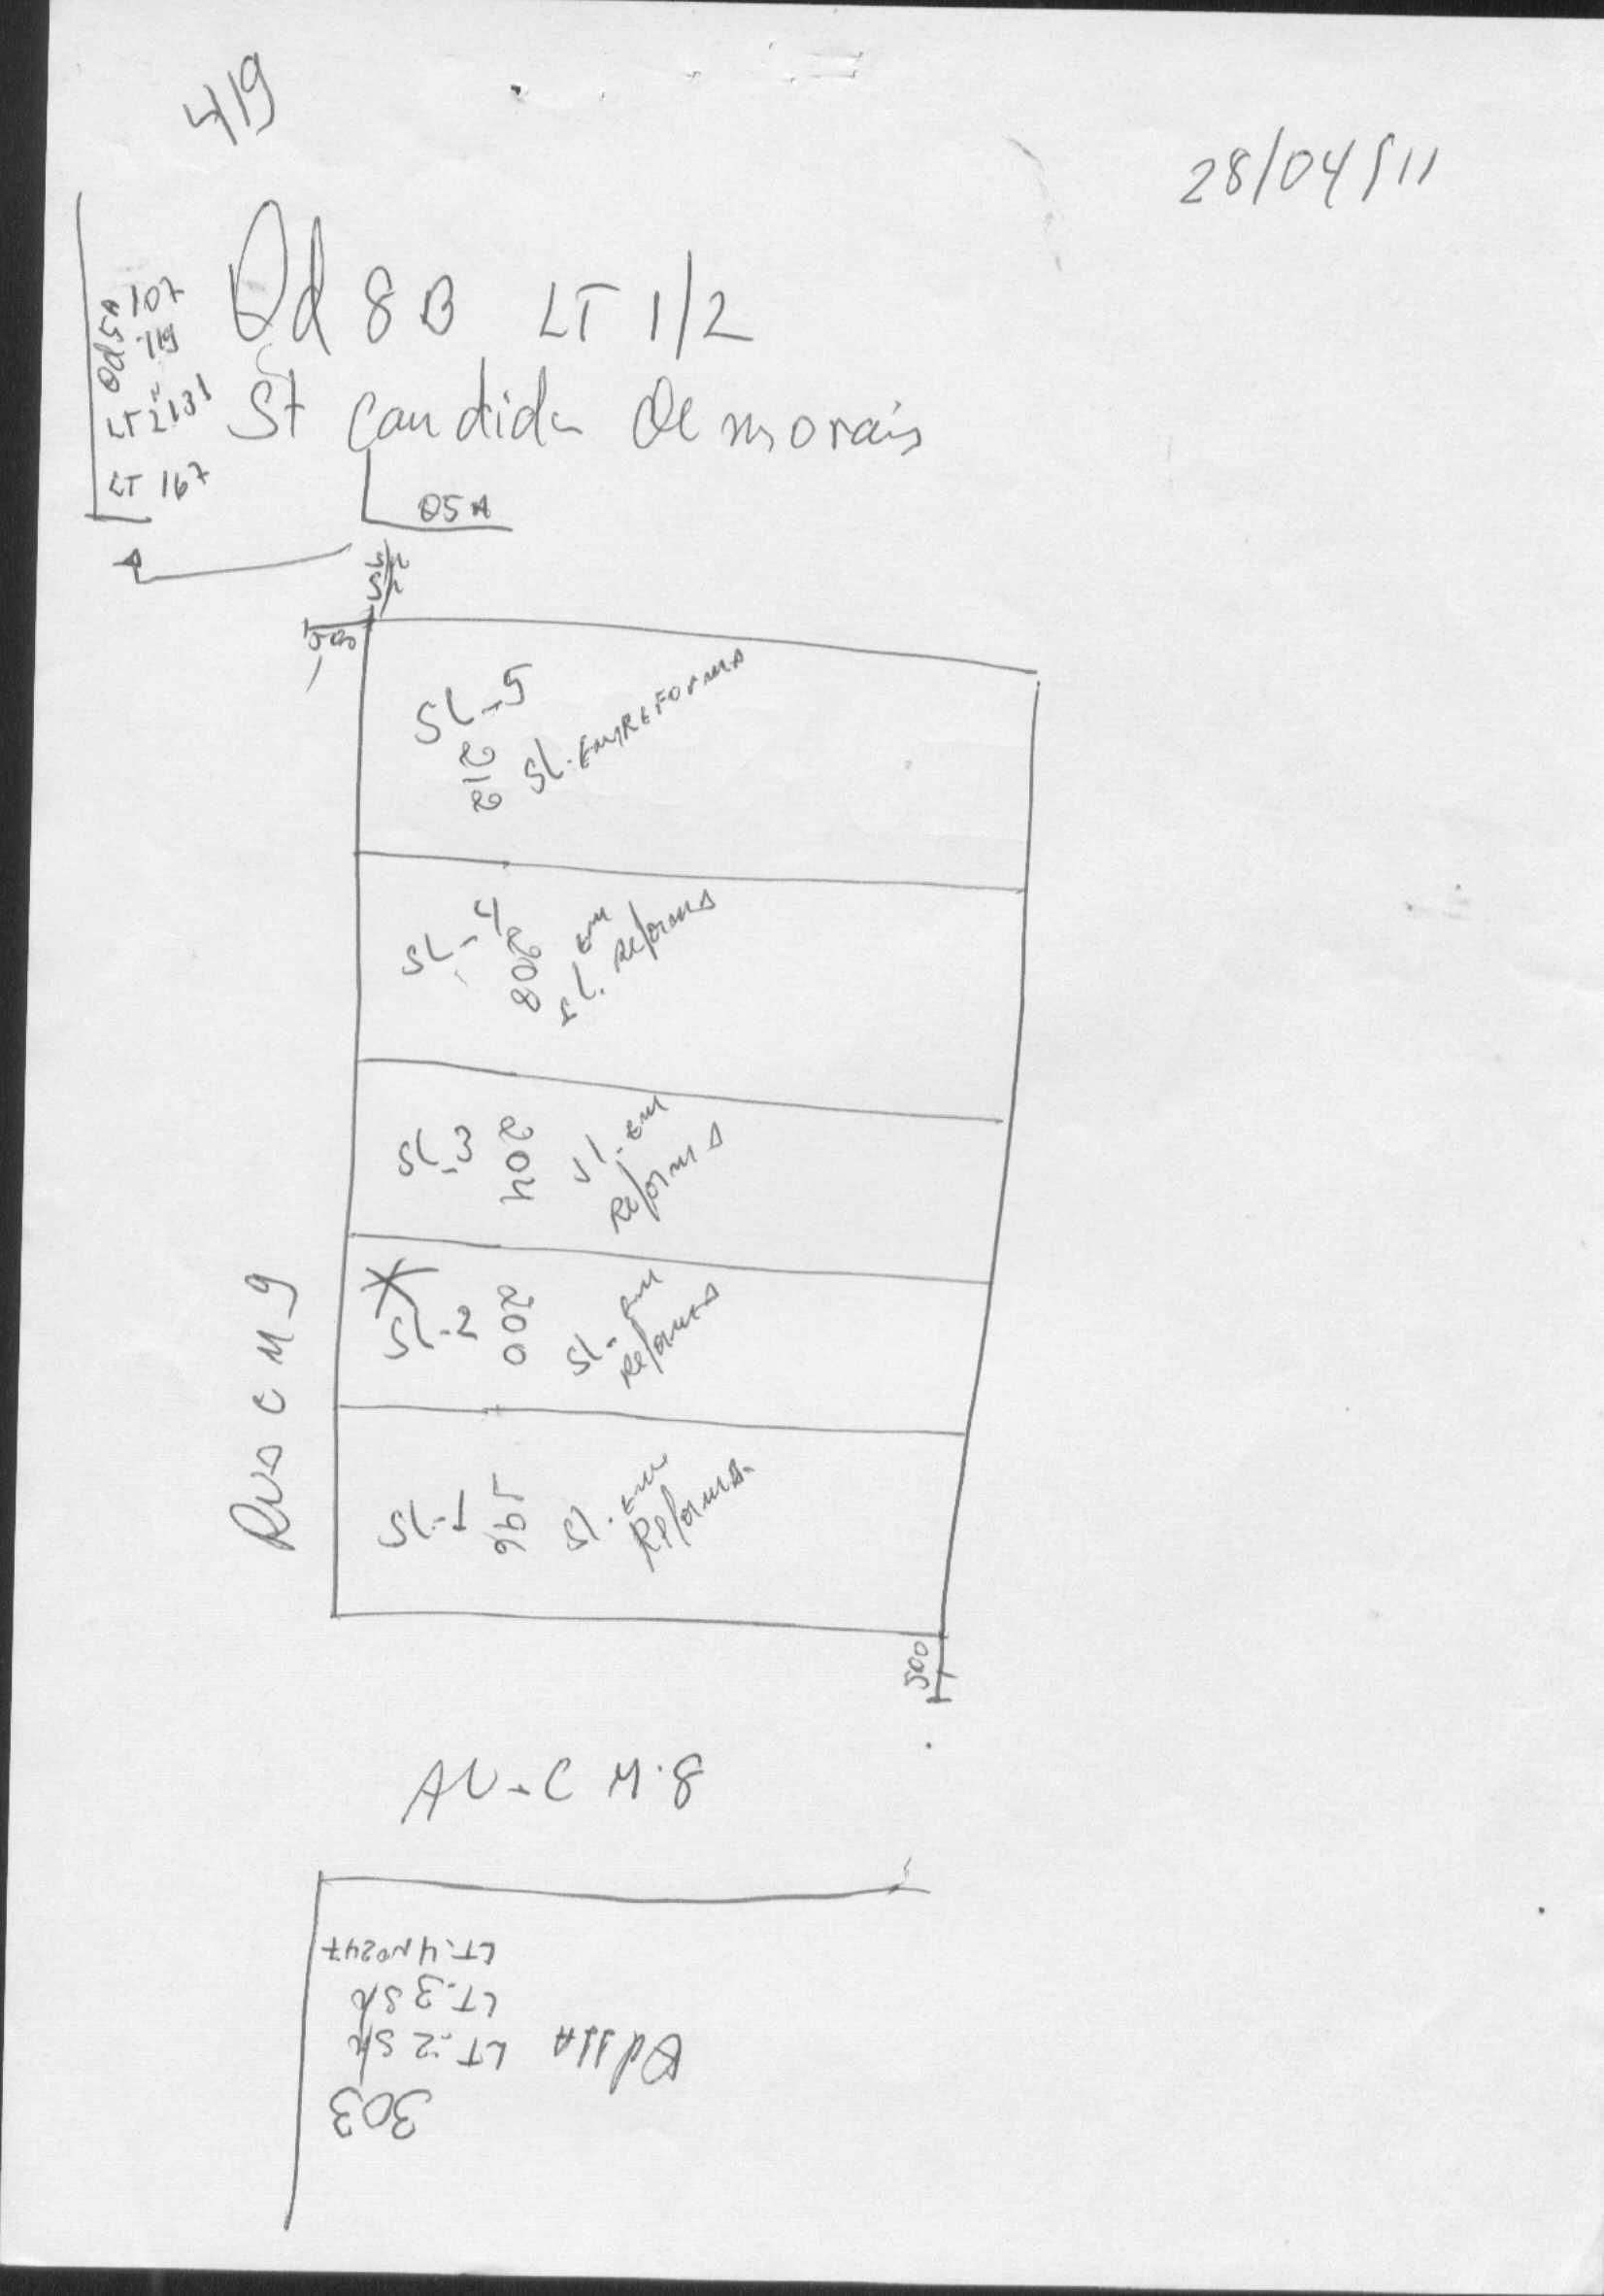 419
28/04/11
Qd 8B LT 1/2
St Candida de morais
Qd5A 107
119
LT 2 131
LT 167
Q5A
SL-5
212
SL. EM REFORMA
SL-4
208
SL. em Reforma
SL-3
204
SL. em
Reforma
SL-2
200
SL- em
Reforma
SL-1
196
SL. em
Reforma.
RUA C M 9
500
AV-C M-8
LT-4 No 247
LT-3 S/
LT-2 S/
303
Qd 11A